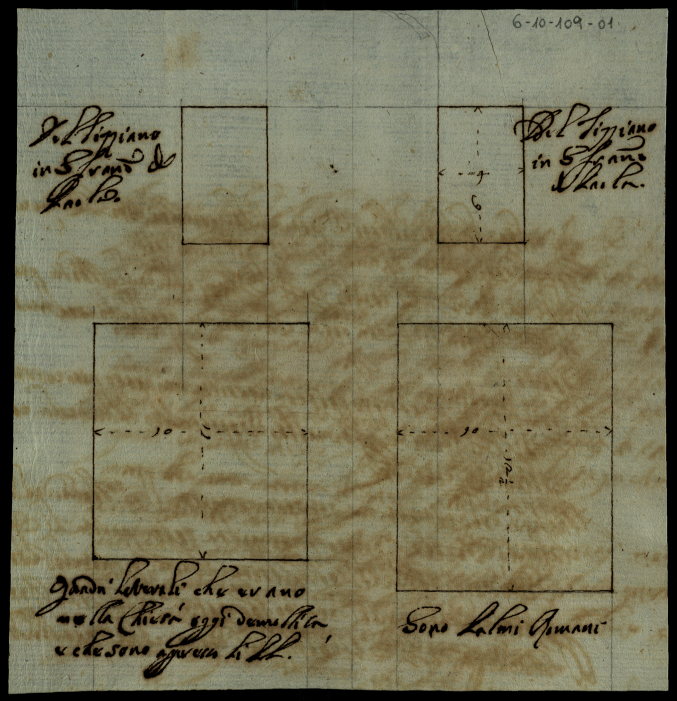 6-10-109-01
Del Tiziano
in S. Franc.º di
Paola.
Del Tiziano
in S. Franc.º
di Paola.
4
6
10
11
10
12½
Quadri laterali che erano
nella Chiesa oggi demolita
e che sono appresso li PP.
Sono Palmi Romani